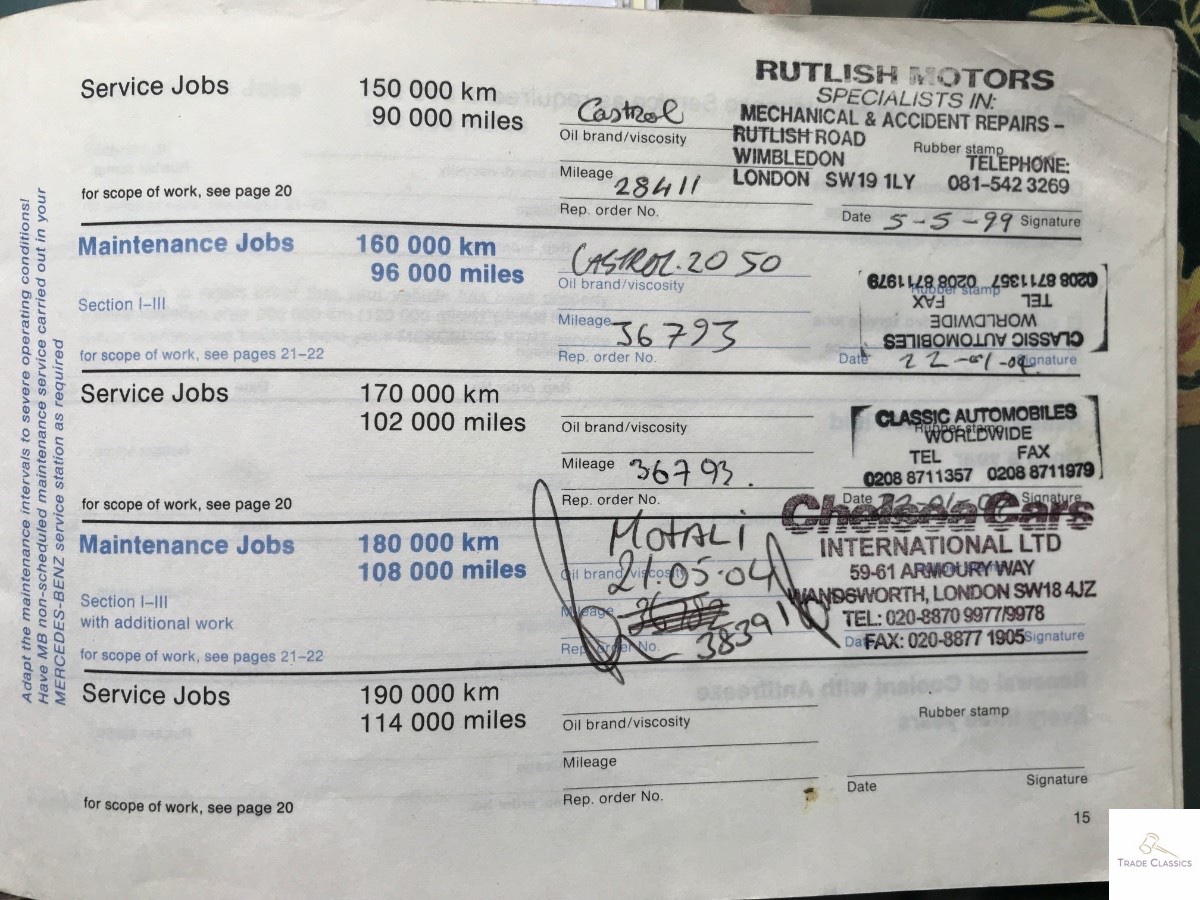 Adapt the maintenance intervals to severe operating conditions!
Have MB non-scheduled maintenance service carried out in your
MERCEDES-BENZ service station as required
Service Jobs
150 000 km
90 000 miles
for scope of work, see page 20
Castrol
Oil brand/viscosity
Mileage 28411
Rep. order No.
RUTLISH MOTORS
SPECIALISTS IN:
MECHANICAL & ACCIDENT REPAIRS –
RUTLISH ROAD
Rubber stamp
WIMBLEDON
TELEPHONE:
LONDON SW19 1LY 081-542 3269
Date 5-5-99 Signature
Maintenance Jobs
160 000 km
96 000 miles
Section I–III
for scope of work, see pages 21–22
CASTROL.20 50
Oil brand/viscosity
Mileage 36793
Rep. order No.
CLASSIC AUTOMOBILES
WORLDWIDE
TEL FAX
0208 8711357 0208 8711979
Rubber stamp
Date 22-01-04 Signature
Service Jobs
170 000 km
102 000 miles
for scope of work, see page 20
Oil brand/viscosity
Mileage 36793.
Rep. order No.
CLASSIC AUTOMOBILES
Rubber stamp
WORLDWIDE
TEL FAX
0208 8711357 0208 8711979
Date Signature
Maintenance Jobs
180 000 km
108 000 miles
Section I–III
with additional work
for scope of work, see pages 21–22
MOTALI
21.05-04
Oil brand/viscosity
Mileage
38391
Rep. order No.
Chelsea Cars
INTERNATIONAL LTD
59-61 ARMOURY WAY
WANDSWORTH, LONDON SW18 4JZ
TEL: 020-8870 9977/9978
FAX: 020-8877 1905
Date Signature
Service Jobs
190 000 km
114 000 miles
for scope of work, see page 20
Oil brand/viscosity
Mileage
Rep. order No.
Rubber stamp
Date Signature
15
TRADE CLASSICS